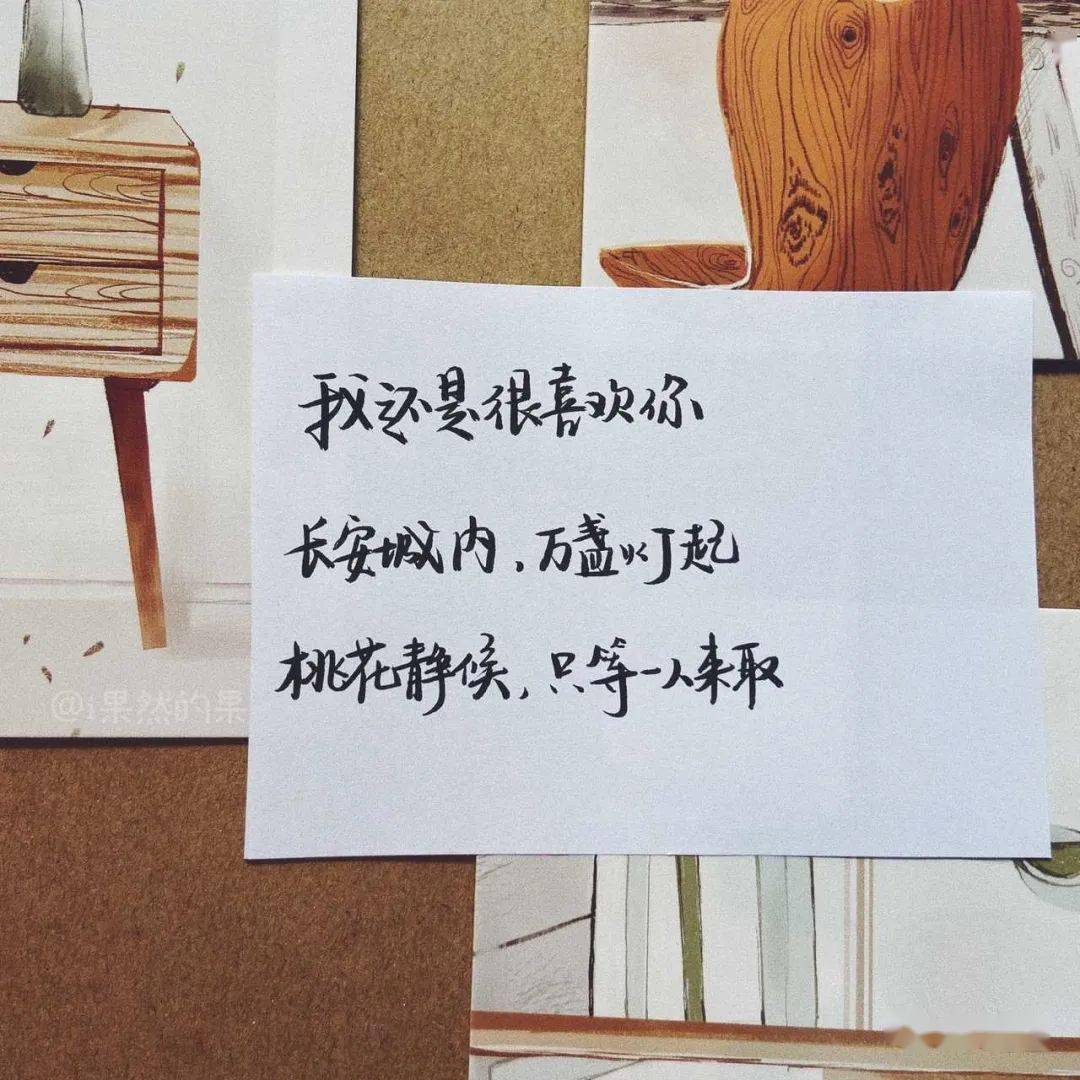 我还是很喜欢你
长安城内，万盏灯起
桃花静候，只等一人来取
@i果然的果